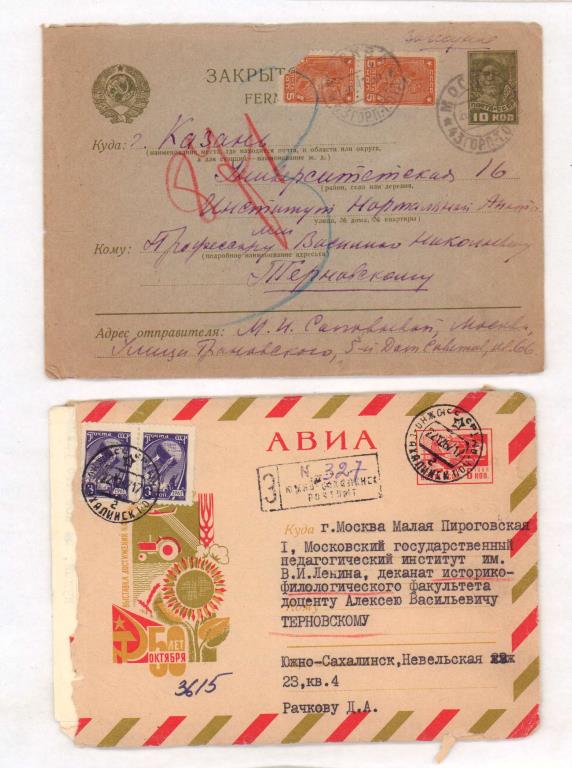 Заказное
ЗАКРЫТ
FERM
5 КОП. 5 КОП.
10 КОП
МОСКВА
43 ГОРП.
Куда: г. Казань
(наименование места, где находится почта, и области или округа,
а для станции — наименование ж. д.)
Университетская 16
(район, село или деревня,
Институт Нормальной Анато-
мии
улица, № дома, № квартиры)
Кому: Профессору Василию Николаевичу
(подробное наименование адресата)
Терновскому
Адрес отправителя: М. И. Москва,
Улица Грановского, 5-й Дом Советов, кв. 66
АВИА
ПОЧТА СССР
3
1961
6 КОП.
З
N 327
ЮЖНО-САХАЛИНСК
ПОЧТАМТ
ВЫСТАВКА ДОСТИЖЕНИЙ
50 ЛЕТ
ОКТЯБРЯ
3615
Куда г.Москва Малая Пироговская
I, Московский государственный
педагогический институт им.
В.И.Ленина, деканат историко-
филологического факультета
Кому
доценту Алексею Васильевичу
ТЕРНОВСКОМУ
Южно-Сахалинск, Невельская
23,кв.4
Рачкову Д.А.